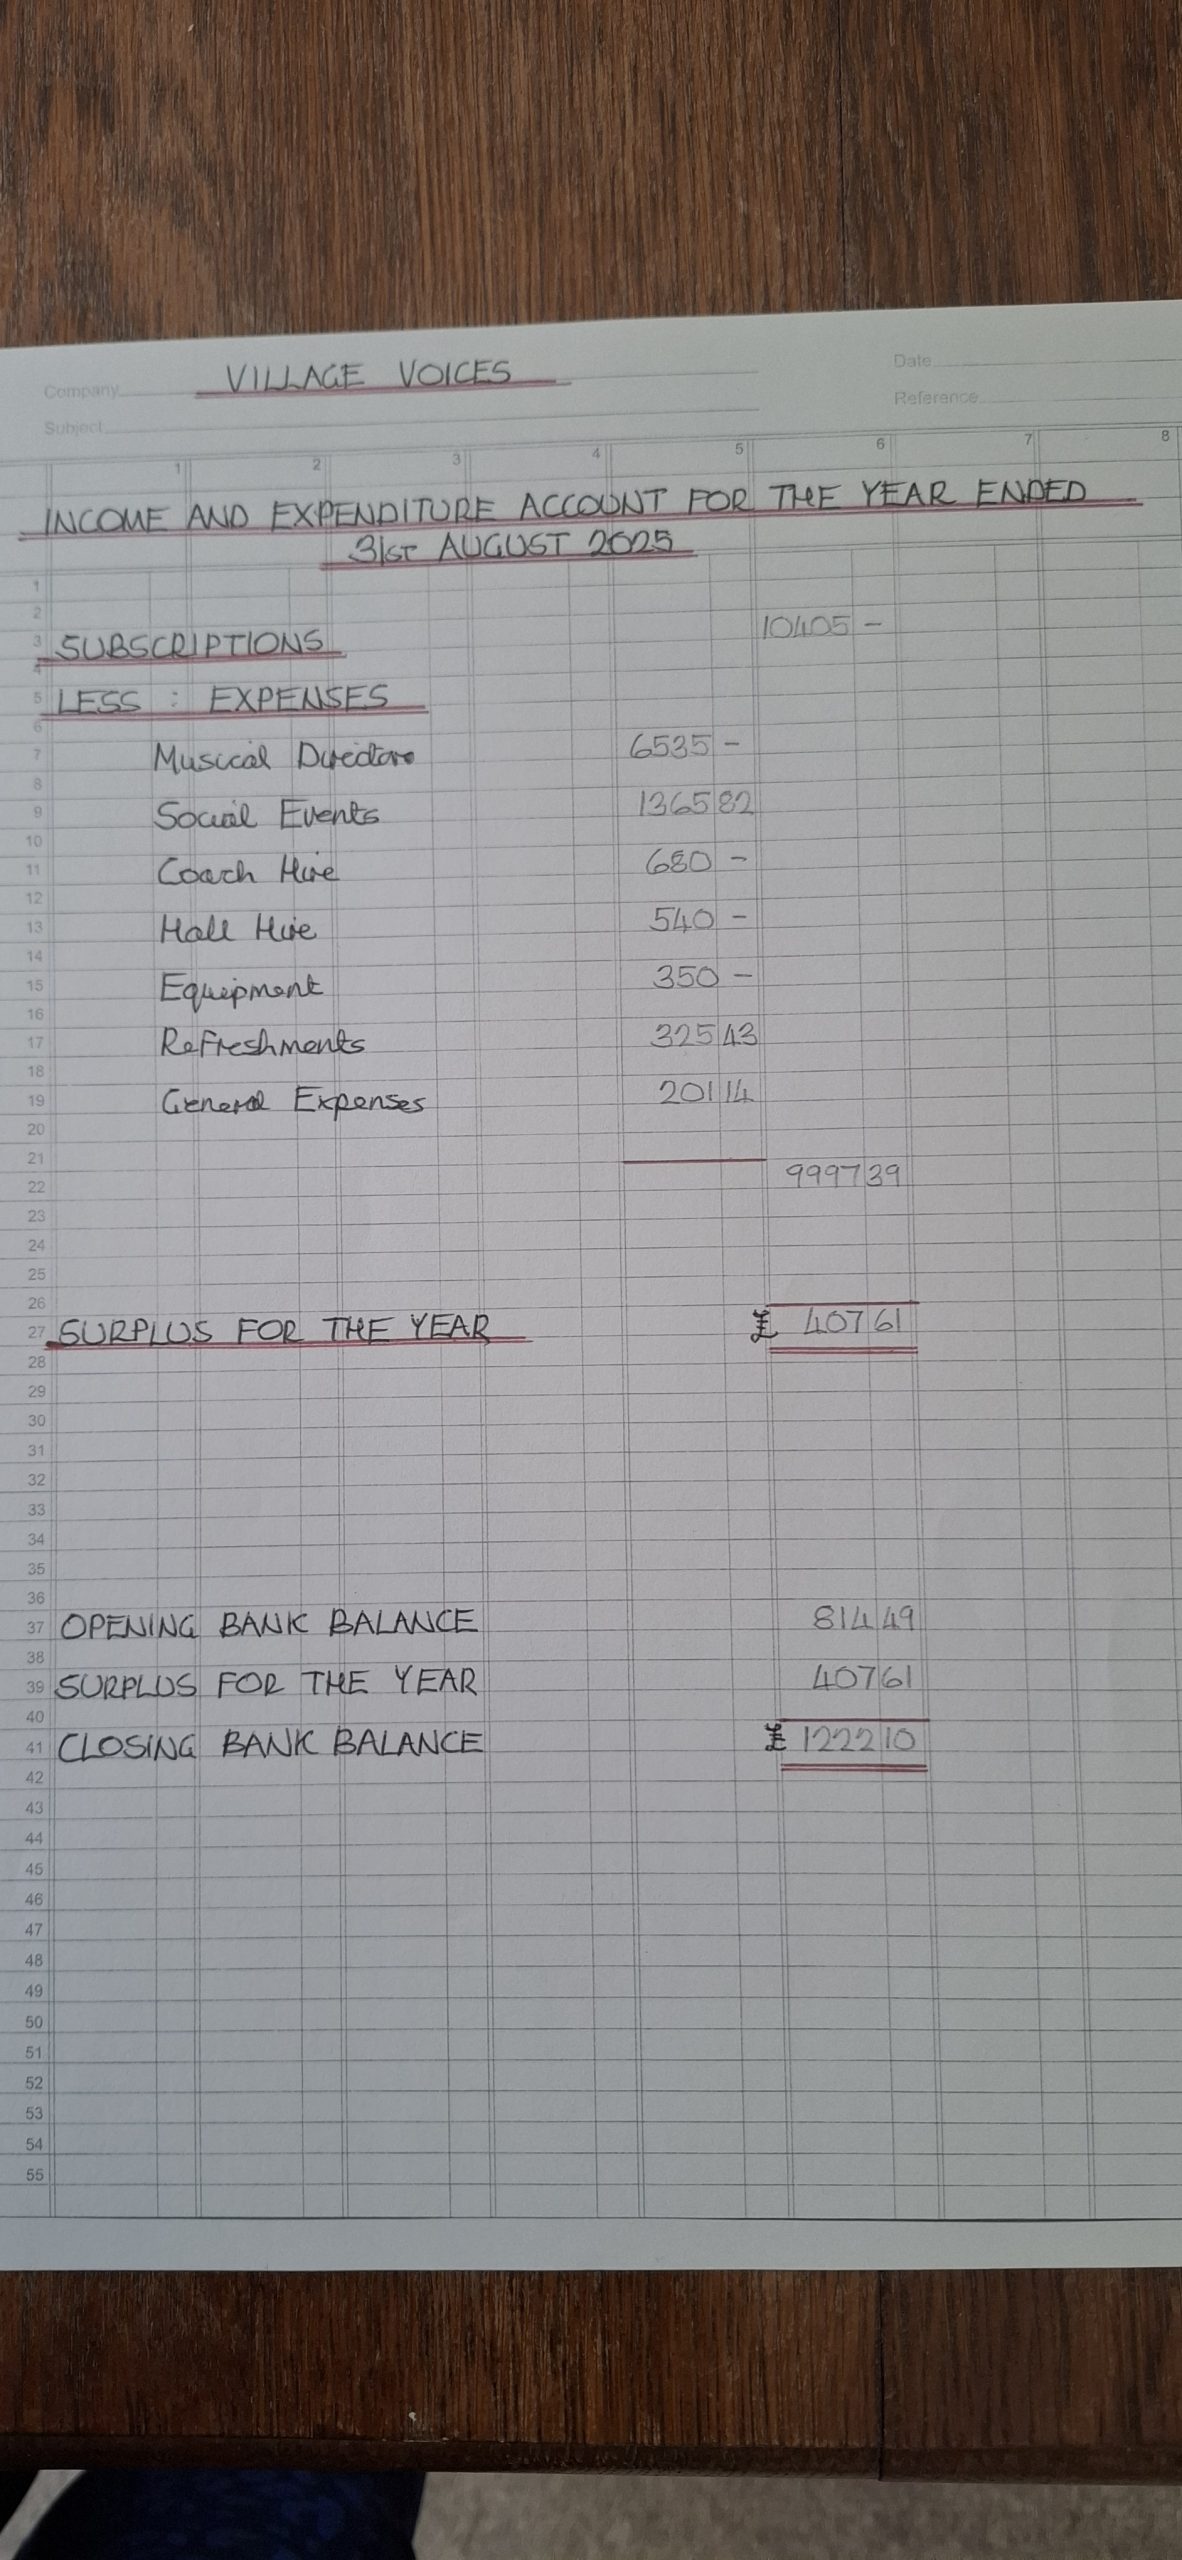 Company VILLAGE VOICES Date
Subject Reference
1 2 3 4 5 6 7 8
INCOME AND EXPENDITURE ACCOUNT FOR THE YEAR ENDED
31ST AUGUST 2025
1
2
3 SUBSCRIPTIONS 10405 -
4
5 LESS : EXPENSES
6
7 Musical Director 6535 -
8
9 Social Events 1365 82
10
11 Coach Hire 680 -
12
13 Hall Hire 540 -
14
15 Equipment 350 -
16
17 Refreshments 325 43
18
19 General Expenses 201 14
20
21
22 9997 39
23
24
25
26
27 SURPLUS FOR THE YEAR £ 407 61
28
29
30
31
32
33
34
35
36
37 OPENING BANK BALANCE 814 49
38
39 SURPLUS FOR THE YEAR 407 61
40
41 CLOSING BANK BALANCE £ 1222 10
42
43
44
45
46
47
48
49
50
51
52
53
54
55